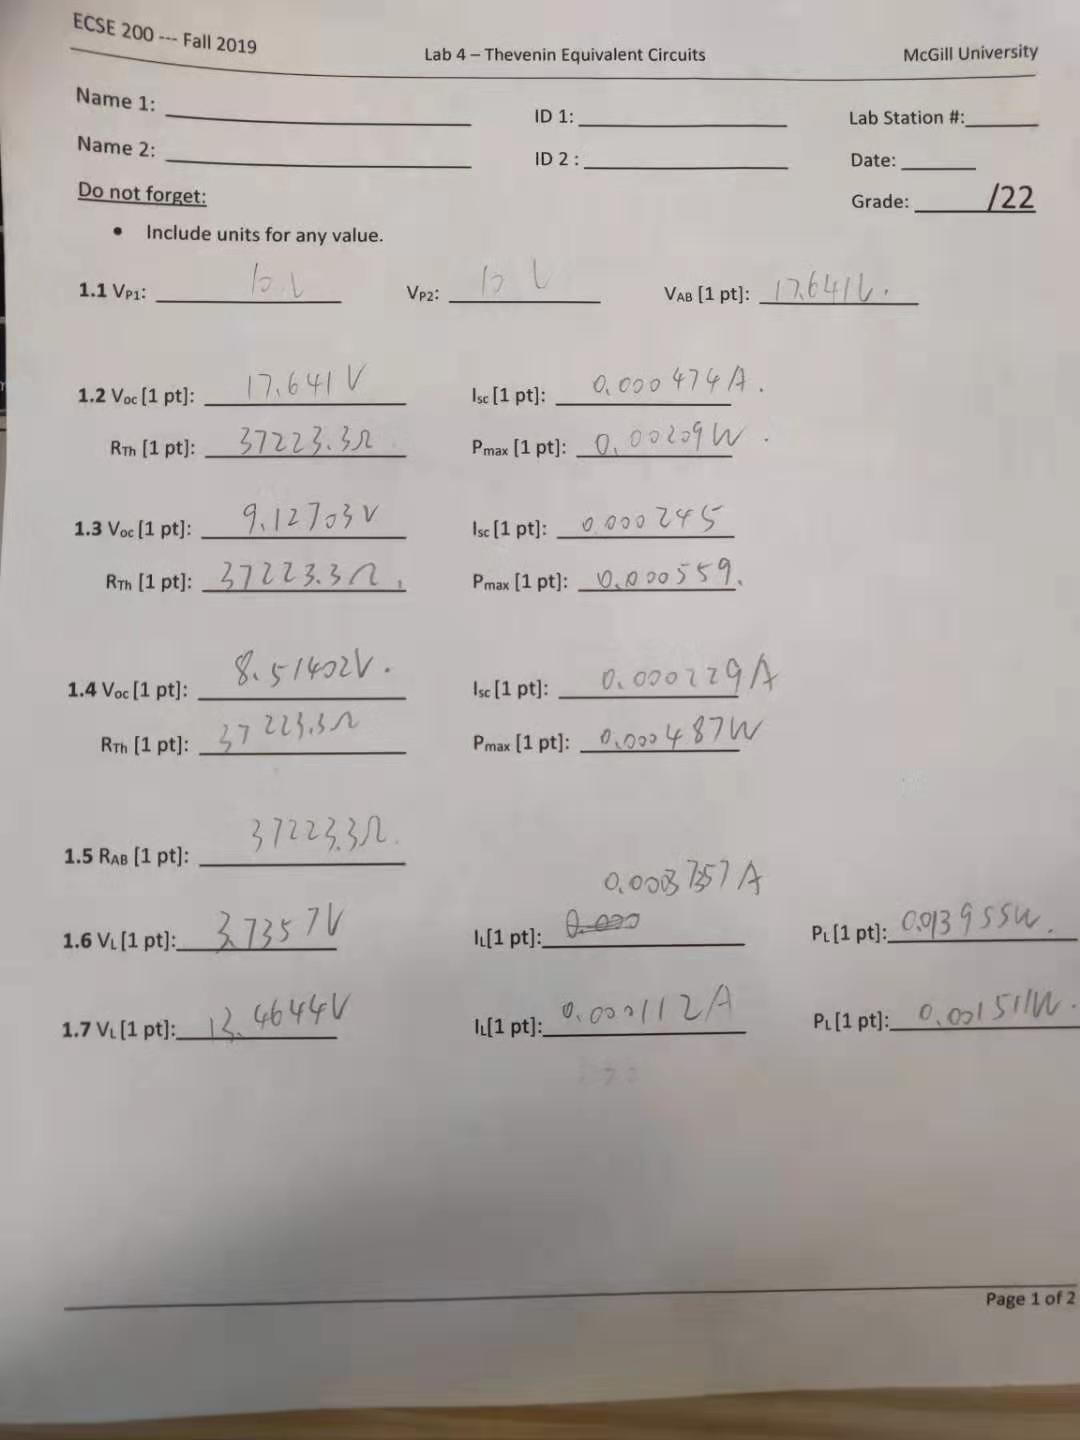 ECSE 200 --- Fall 2019 Lab 4 – Thevenin Equivalent Circuits McGill University
Name 1: ID 1: Lab Station #:
Name 2: ID 2 : Date:
Do not forget: Grade: /22
• Include units for any value.
1.1 VP1: 10 V VP2: 10 V VAB [1 pt]: 17.641V.
1.2 Voc [1 pt]: 17.641 V Isc [1 pt]: 0.000474A.
RTh [1 pt]: 37223.3Ω Pmax [1 pt]: 0.00209W.
1.3 Voc [1 pt]: 9.12703V Isc [1 pt]: 0.000245
RTh [1 pt]: 37223.3Ω. Pmax [1 pt]: 0.000559.
1.4 Voc [1 pt]: 8.51402V. Isc [1 pt]: 0.000229A
RTh [1 pt]: 37223.3Ω Pmax [1 pt]: 0.000487W
1.5 RAB [1 pt]: 37223.3Ω.
1.6 VL [1 pt]: 3.7357V IL[1 pt]: PL [1 pt]: 0.013955W.
1.7 VL [1 pt]: 13.4644V IL[1 pt]: 0.000112A PL [1 pt]: 0.001511W.
Page 1 of 2